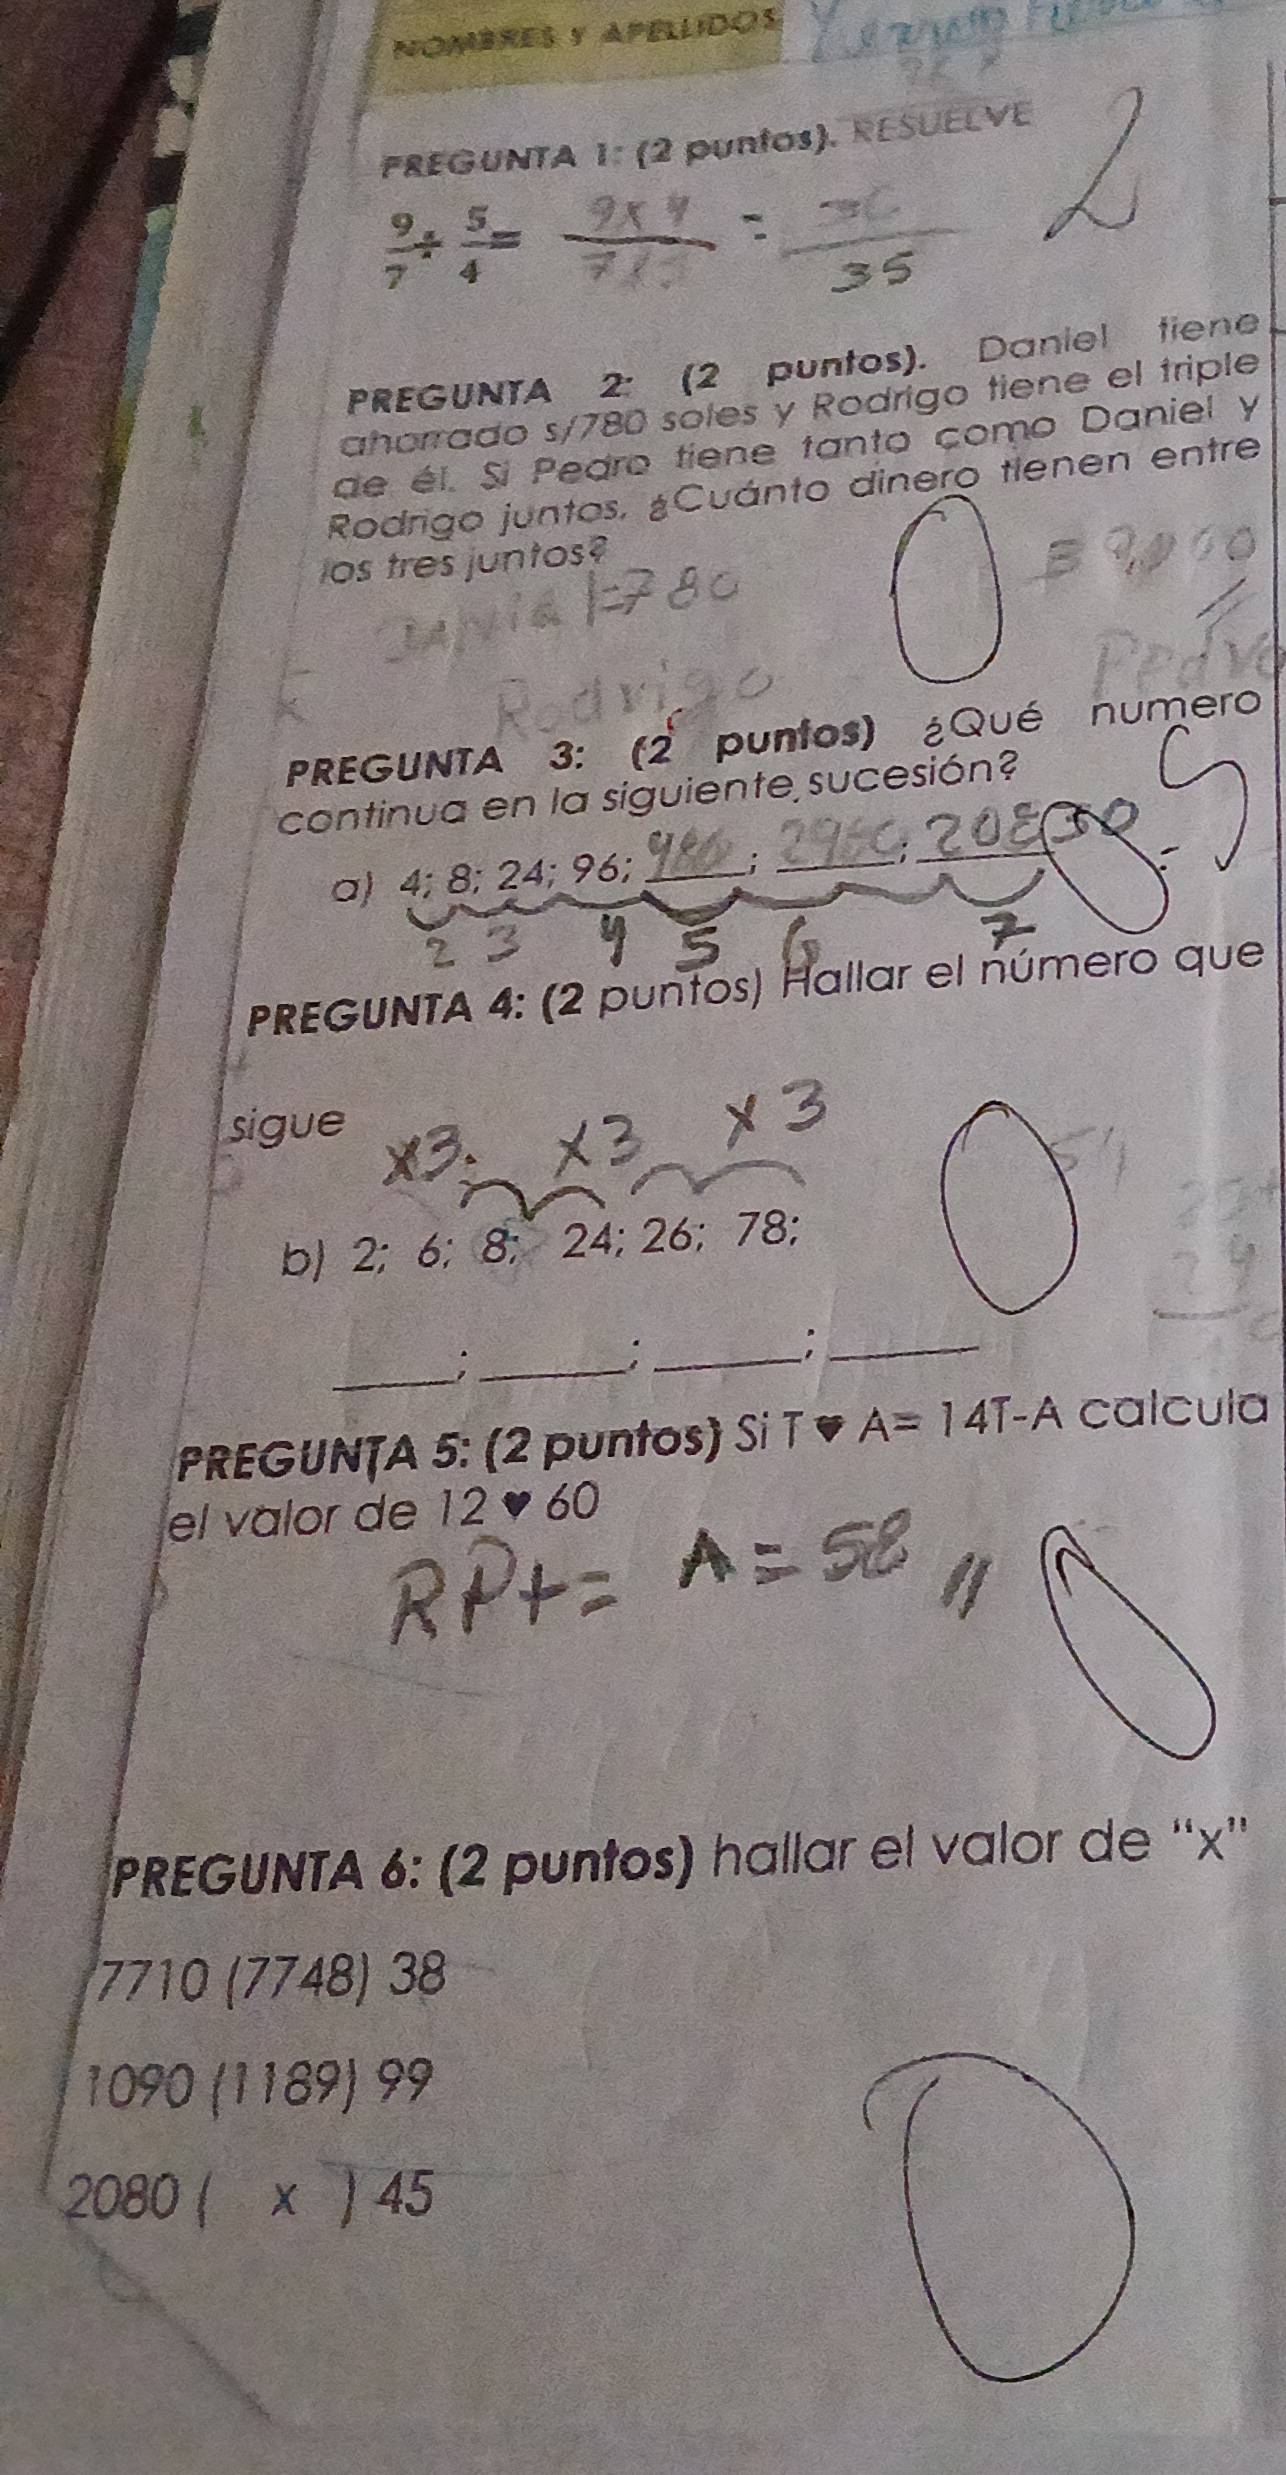 NOMBRES Y APELLIDOS
PREGUNTA 1: (2 puntos). RESUELVE
2
9/7 ÷ 5/4 = 9x4/7x5 = 36/35
PREGUNTA 2: (2 puntos). Daniel tiene
ahorrado s/780 soles y Rodrigo tiene el triple
de él. Si Pedro tiene tanto como Daniel y
Rodrigo juntos. ¿Cuánto dinero tienen entre
los tres juntos?
=780
Rodrigo
Pedro
PREGUNTA 3: (2 puntos) ¿Qué numero
continua en la siguiente sucesión?
a) 4; 8; 24; 96; ____; ____; ____
2 3 4 5 6 7
PREGUNTA 4: (2 puntos) Hallar el número que
sigue
x3 x3 x3
b) 2; 6; 8; 24; 26; 78;
____; ____; ____; ____
PREGUNTA 5: (2 puntos) Si T ♥ A= 14T-A calcula
el valor de 12 ♥ 60
RPt= A = 58 //
PREGUNTA 6: (2 puntos) hallar el valor de "x"
7710 (7748) 38
1090 (1189) 99
2080 ( x ) 45